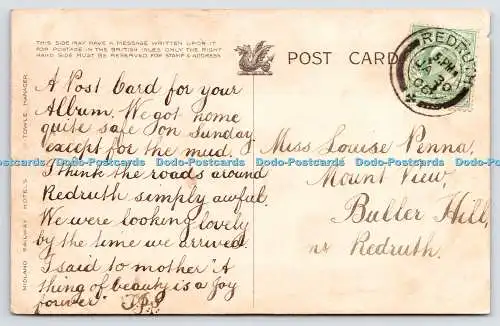 THIS SIDE MAY HAVE A MESSAGE WRITTEN UPON IT
FOR POSTAGE IN THE BRITISH ISLES ONLY THE RIGHT
HAND SIDE MUST BE RESERVED FOR STAMP & ADDRESS.
POST CARD
REDRUTH
MIDLAND RAILWAY HOTELS TOWLE, MANAGER
A Post Card for your
Album. We got home
quite safe on Sunday
except for the mud.
I think the roads around
Redruth simply awful.
We were looking lovely
by the time we arrived.
I said to mother "A
thing of beauty is a joy
forever"
Miss Louise Penna,
Mount View,
Buller Hill,
nr Redruth.
Dodo-Postcards Dodo-Postcards Dodo-Postcards Dodo-Postcards Dodo-Postcards Dodo-Postcards